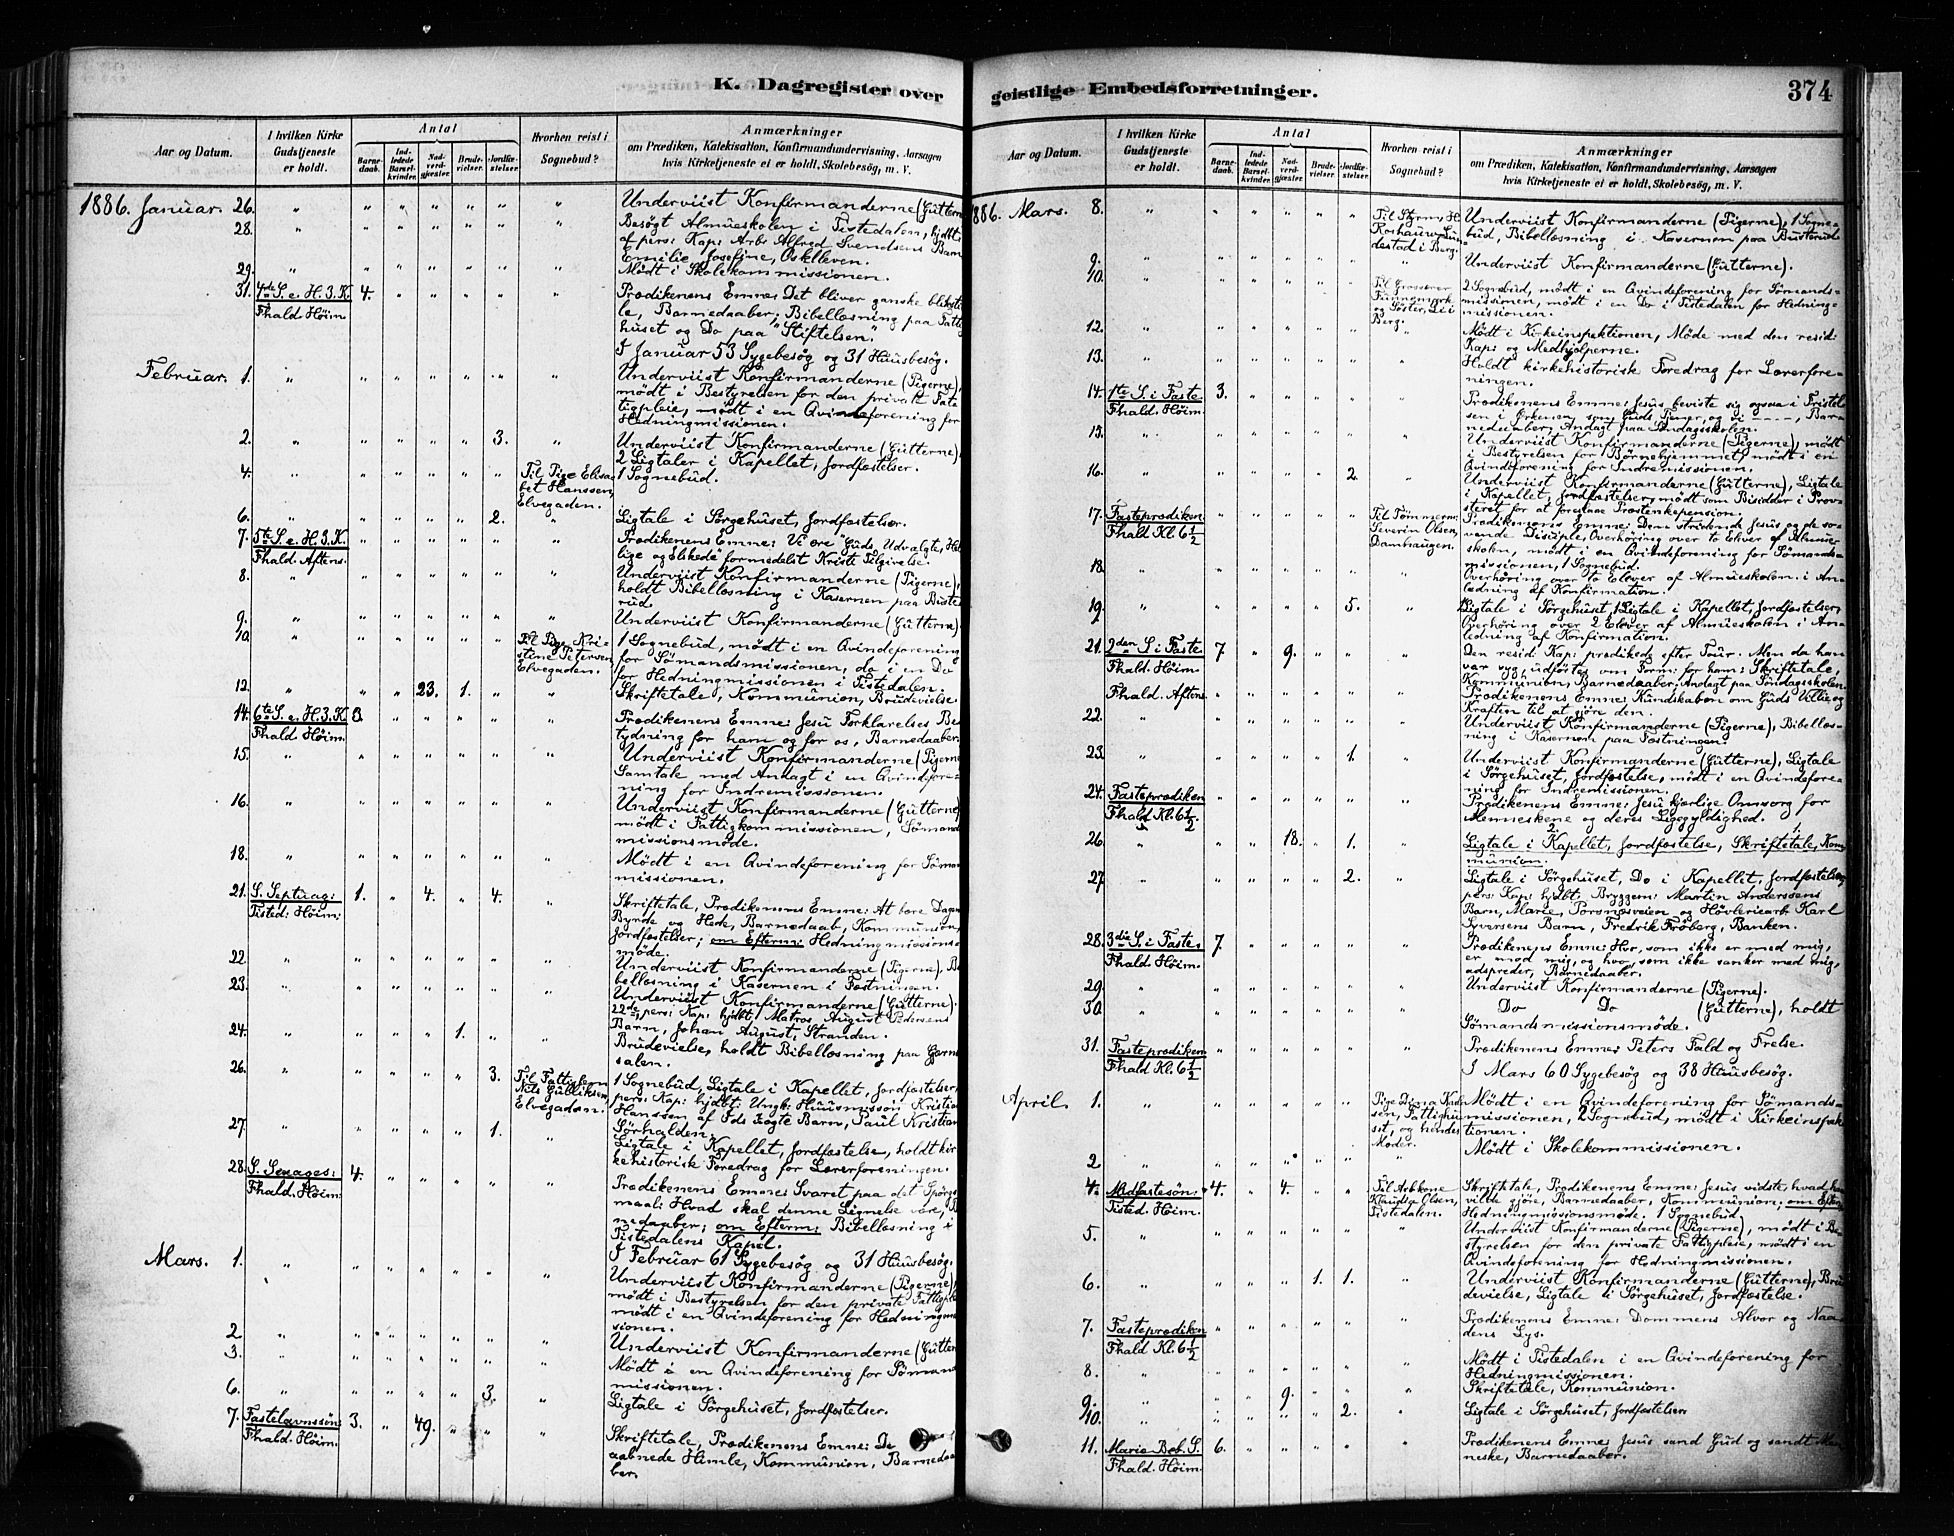 K. Dagregister over
Aar og Datum.
I hvilken Kirke Gudstjeneste er holdt.
Antal
Barnedaab.
Indledede Barselkvinder.
Nadverdgjæster.
Brudevielser.
Jordfæstelser.
Hvorhen reist i Sognebud?
Anmærkninger
om Prædiken, Katekisation, Konfirmandundervisning, Aarsagen
hvis Kirketjeneste ei er holdt, Skolebesøg, m. V.
1886. Januar. 26. Underviist Konfirmanderne (Gutterne
28. Besøgt Almueskolen i Tistedalen, hjdbt:
af pers: Kap: Arb: Alfred Svendsens Barn
Emilie Josefine, Oskleven.
29. Mødt i Skolekommissionen.
31. 4de S. e. H. 3. K. 4. Prædikenens Emne: Det bliver ganske blikstil-
Fhald. Høim. le, Barnedaaber; Bibellæsning paa Fattig
huset og Do paa "Stiftelsen".
I Januar 53 Sygebesøg og 31 Huusbesøg.
Februar. 1. Underviist Konfirmanderne (Pigerne),
mødt i Bestyrelsen for den private Fat-
tigpleie, mødt i en Qvindeforening for
Hedningmissionen.
2. 3. Underviist Konfirmanderne (Gutterne)
2 Ligtaler i Kapellet, Jordfæstelser.
4. Til Pige Elisa- 1 Sognebud.
bet Hanssen,
Elvegaden.
6. 2. Ligtale i Sørgehuset, Jordfæstelser.
7. 5te S. e. H. 3. K. Prædikenens Emne: Vi ere "Guds Udvalgte, Hel-
Fhald. Aftens. lige og Elskede" formedelst Kristi Tilgivelse.
8. Underviist Konfirmanderne (Pigerne),
holdt Bibellæsning i Kasernen paa Buste-
rud.
9. Underviist Konfirmanderne (Gutterne).
10. Til Kri- 1 Sognebud, mødt i en Qvindeforening
stine Petersen for Sømandsmissionen, do i en Do
Elvegaden. for Hedningmissionen i Tistedalen.
12. 23. 1. Skriftetale, Kommunion, Brudevielse.
14. 6te S. e. H. 3. K. 8. Prædikenens Emne: Jesu Forklarelses Be-
Fhald. Høim. tydning for ham og for os, Barnedaaber.
15. Underviist Konfirmanderne (Pigerne
Samtale med Andagt i en Qvindefore-
ning for Indremissionen.
16. Underviist Konfirmanderne (Gutterne
mødt i Fattigkommissionen, Sømands
missionsmøde.
18. Mødt i en Qvindeforening for Søman
missionen.
21. S. Septuag: 1. 4. 4. Skriftetale, Prædikenens Emne: At bære Dagens
Tisted: Høim: Byrde og Hede, Barnedaab, Kommunion,
Jordfæstelser; om Efterm: Hedningmissions-
møde.
22. Underviist Konfirmanderne (Pigerne), Bi
bellæsning i Kasernen i Fæstningen.
23. Underviist Konfirmanderne (Gutterne).
22de, pers: Kap: hjdbt: Matros August Pedersens
Barn, Johan August, Stranden.
24. 1. Brudevielse, holdt Bibellæsning paa Garni
salen.
26. 3. Til Fattiglem 1 Sognebud, Ligtale i Kapellet, Jordfæstelser,
Nils Gulliksen, pers: Kap: hjdbt: Ungk: Huusmissoir Kristian
Elvegaden. Hanssen af Ids uægte Barn, Paul Kristian
Sørhalden.
27. 1. Ligtale i Kapellet, Jordfæstelse, holdt kir
kehistorisk Foredrag for Lærerforeningen.
28. S. Sexages: 4. Prædikenens Emne: Svaret paa det Spørgs-
Fhald. Høim: maal: Hvad skal denne Lignelse være, B
nedaaber; om Efterm: Bibellæsning i
Tistedalens Kapel.
I Februar 61 Sygebesøg og 31 Huusbesøg.
Mars. 1. Underviist Konfirmanderne (Pigerne),
mødt i Bestyrelsen for den private Fattigple
mødt i en Qvindeforening for Hedningmis-
sionen.
2. Underviist Konfirmanderne (Gutter
3. Mødt i en Qvindeforening for Søman
missionen.
6. 3. Ligtale i Sørgehuset, Jordfæstelser.
7. Fastelavnssøn: 3. 49. Skriftetale, Prædikenens Emne: De
Fhald. Høim. aabnede Himle, Kommunion, Barnedaa
ber.
geistlige Embedsforretninger.
374
Aar og Datum.
I hvilken Kirke Gudstjeneste er holdt.
Antal
Barnedaab.
Indledede Barselkvinder.
Nadverdgjæster.
Brudevielser.
Jordfæstelser.
Hvorhen reist i Sognebud?
Anmærkninger
om Prædiken, Katekisation, Konfirmandundervisning, Aarsagen
hvis Kirketjeneste ei er holdt, Skolebesøg, m. V.
1886. Mars. 8. Til Styrm: H. Underviist Konfirmanderne (Pigerne), 1 Sogne-
destad i Berg. bud, Bibellæsning i Kasernen paa Busterud.
9. Underviist Konfirmanderne (Gutterne).
10. Til Grosserer 2 Sognebud, mødt i en Qvindeforening for Sømands-
og Søster, i missionen, mødt i en Do i Tistedalen for Hedning-
Berg. missionen.
12. Mødt i Kirkeinspektionen, Møde med den resid:
Kap: og Medhjelperne.
13. Holdt kirkehistorisk Foredrag for Lærerfore-
ningen.
14. 1te S. i Faste 3. Prædikenens Emne: Jesus beviste sig ogsaa i Fristel-
Fhald. Høim. sen i Ørkenen som Guds Tjener, og vi ----, Bar-
nedaaber, Andagt paa Søndagsskolen.
15. Underviist Konfirmanderne (Pigerne), mødt
i Bestyrelsen for Børnehjemmet, mødt i en
Qvindeforening for Indremissionen.
16. 2. Underviist Konfirmanderne (Gutterne), Ligtale
i Kapellet, Jordfæstelser, mødt som Bisidder i Prov-
steret for at foreslaae Præsteenkepension.
17. Fasteprædiken Til Tømmerm: Prædikenens Emne: Den stridende Jesus og de so-
Fhald Kl. 6½ Severin Olsen, vende Disciple, Overhøring over to Elever af Almue-
Damhaugen. skolen, mødt i en Qvindeforening for Sømands-
missionen, 1 Sognebud.
18. Overhøring over to Elever af Almueskolen i An-
ledning af Konfirmation.
19. 5. Ligtale i Sørgehuset, Ligtale i Kapellet, Jordfæstelser,
Overhøring over 2 Elever af Almueskolen i An-
ledning af Konfirmation.
21. 2den S. i Faste 7 9. Den resid: Kap: prædikede efter Tour. Men da han
Fhald. Høim. var syg, udførtes om Form: for ham: Skriftetale,
Kommunion, Barnedaaber, Andagt paa Søndagsskolen.
Fhald. Aftens. Prædikenens Emne: Kundskaben om Guds Villie og
Kraften til at gjøre den.
22. Underviist Konfirmanderne (Pigerne), Bibellæs-
ning i Kasernen paa Fæstningen.
23. 1. Underviist Konfirmanderne (Gutterne), Ligtale
i Sørgehuset, Jordfæstelse, mødt i en Qvindefore-
ning for Indremissionen.
24. Fasteprædiken Prædikenens Emne: Jesu kjærlige Omsorg for
Fhald Kl. 6½ Menneskene og deres Ligegyldighed.
26. 18. 1. Ligtale i Kapellet, Jordfæstelse, Skriftetale, Kom-
munion.
27. 2. Ligtale i Sørgehuset, Do i Kapellet, Jordfæstelser,
pers: Kap: hjdbt: Byggem: Martin Anderssens
Barn, Marie, Torsnæsveien, og Høvleriearb: Karl
Syversens Barn, Fredrik Frøberg, Banken.
28. 3die S. i Faste: 7. Prædikenens Emne: Hvo, som ikke er med mig,
Fhald. Høim. er mod mig, og hvo, som ikke sanker med mig,
adspreder, Barnedaaber.
29. Underviist Konfirmanderne (Pigerne).
30. Do Do (Gutterne), holdt
Sømandsmissionsmøde.
31. Fasteprædiken Prædikenens Emne: Peters Fald og Frelse.
Fhald Kl. 6½ I Mars 60 Sygebesøg og 38 Huusbesøg.
April. 1. Pige Dina Knud- Mødt i en Qvindeforening for Sømands-
sen, Fattighu- missionen, 2 Sognebud, mødt i Kirkeinspek-
set, og hendes tionen.
Moder.
2. Mødt i Skolekommissionen.
4. Midfastesøn: 4. 4. Til Arbkone Skriftetale, Prædikenens Emne: Jesus vidste, hvad han
Tisted. Høim. Klaudia Olsen, vilde gjøre, Barnedaaber, Kommunion; om Efterm:
Tistedalen. Hedningmissionsmøde. 1 Sognebud.
5. Underviist Konfirmanderne (Pigerne), mødt i Be-
styrelsen for den private Fattigpleie, mødt i en
Qvindeforening for Hedningmissionen.
6. 1. 1. Underviist Konfirmanderne (Gutterne), Bru-
devielse, Ligtale i Sørgehuset, Jordfæstelse.
7. Fasteprædiken Prædikenens Emne: Dommens Alvor og Naa-
Fhald Kl. 6½ dens Lys.
8. Mødt i Tistedalen i en Qvindeforening for
Hedningmissionen.
9. 9. Skriftetale, Kommunion.
10. 2. Ligtale i Sørgehuset, Jordfæstelser.
11. Mariæ Beb. S. 6. Prædikenens Emne: Jesus sand Gud og sandt Men-
Fhald. Høim. neske, Barnedaaber.